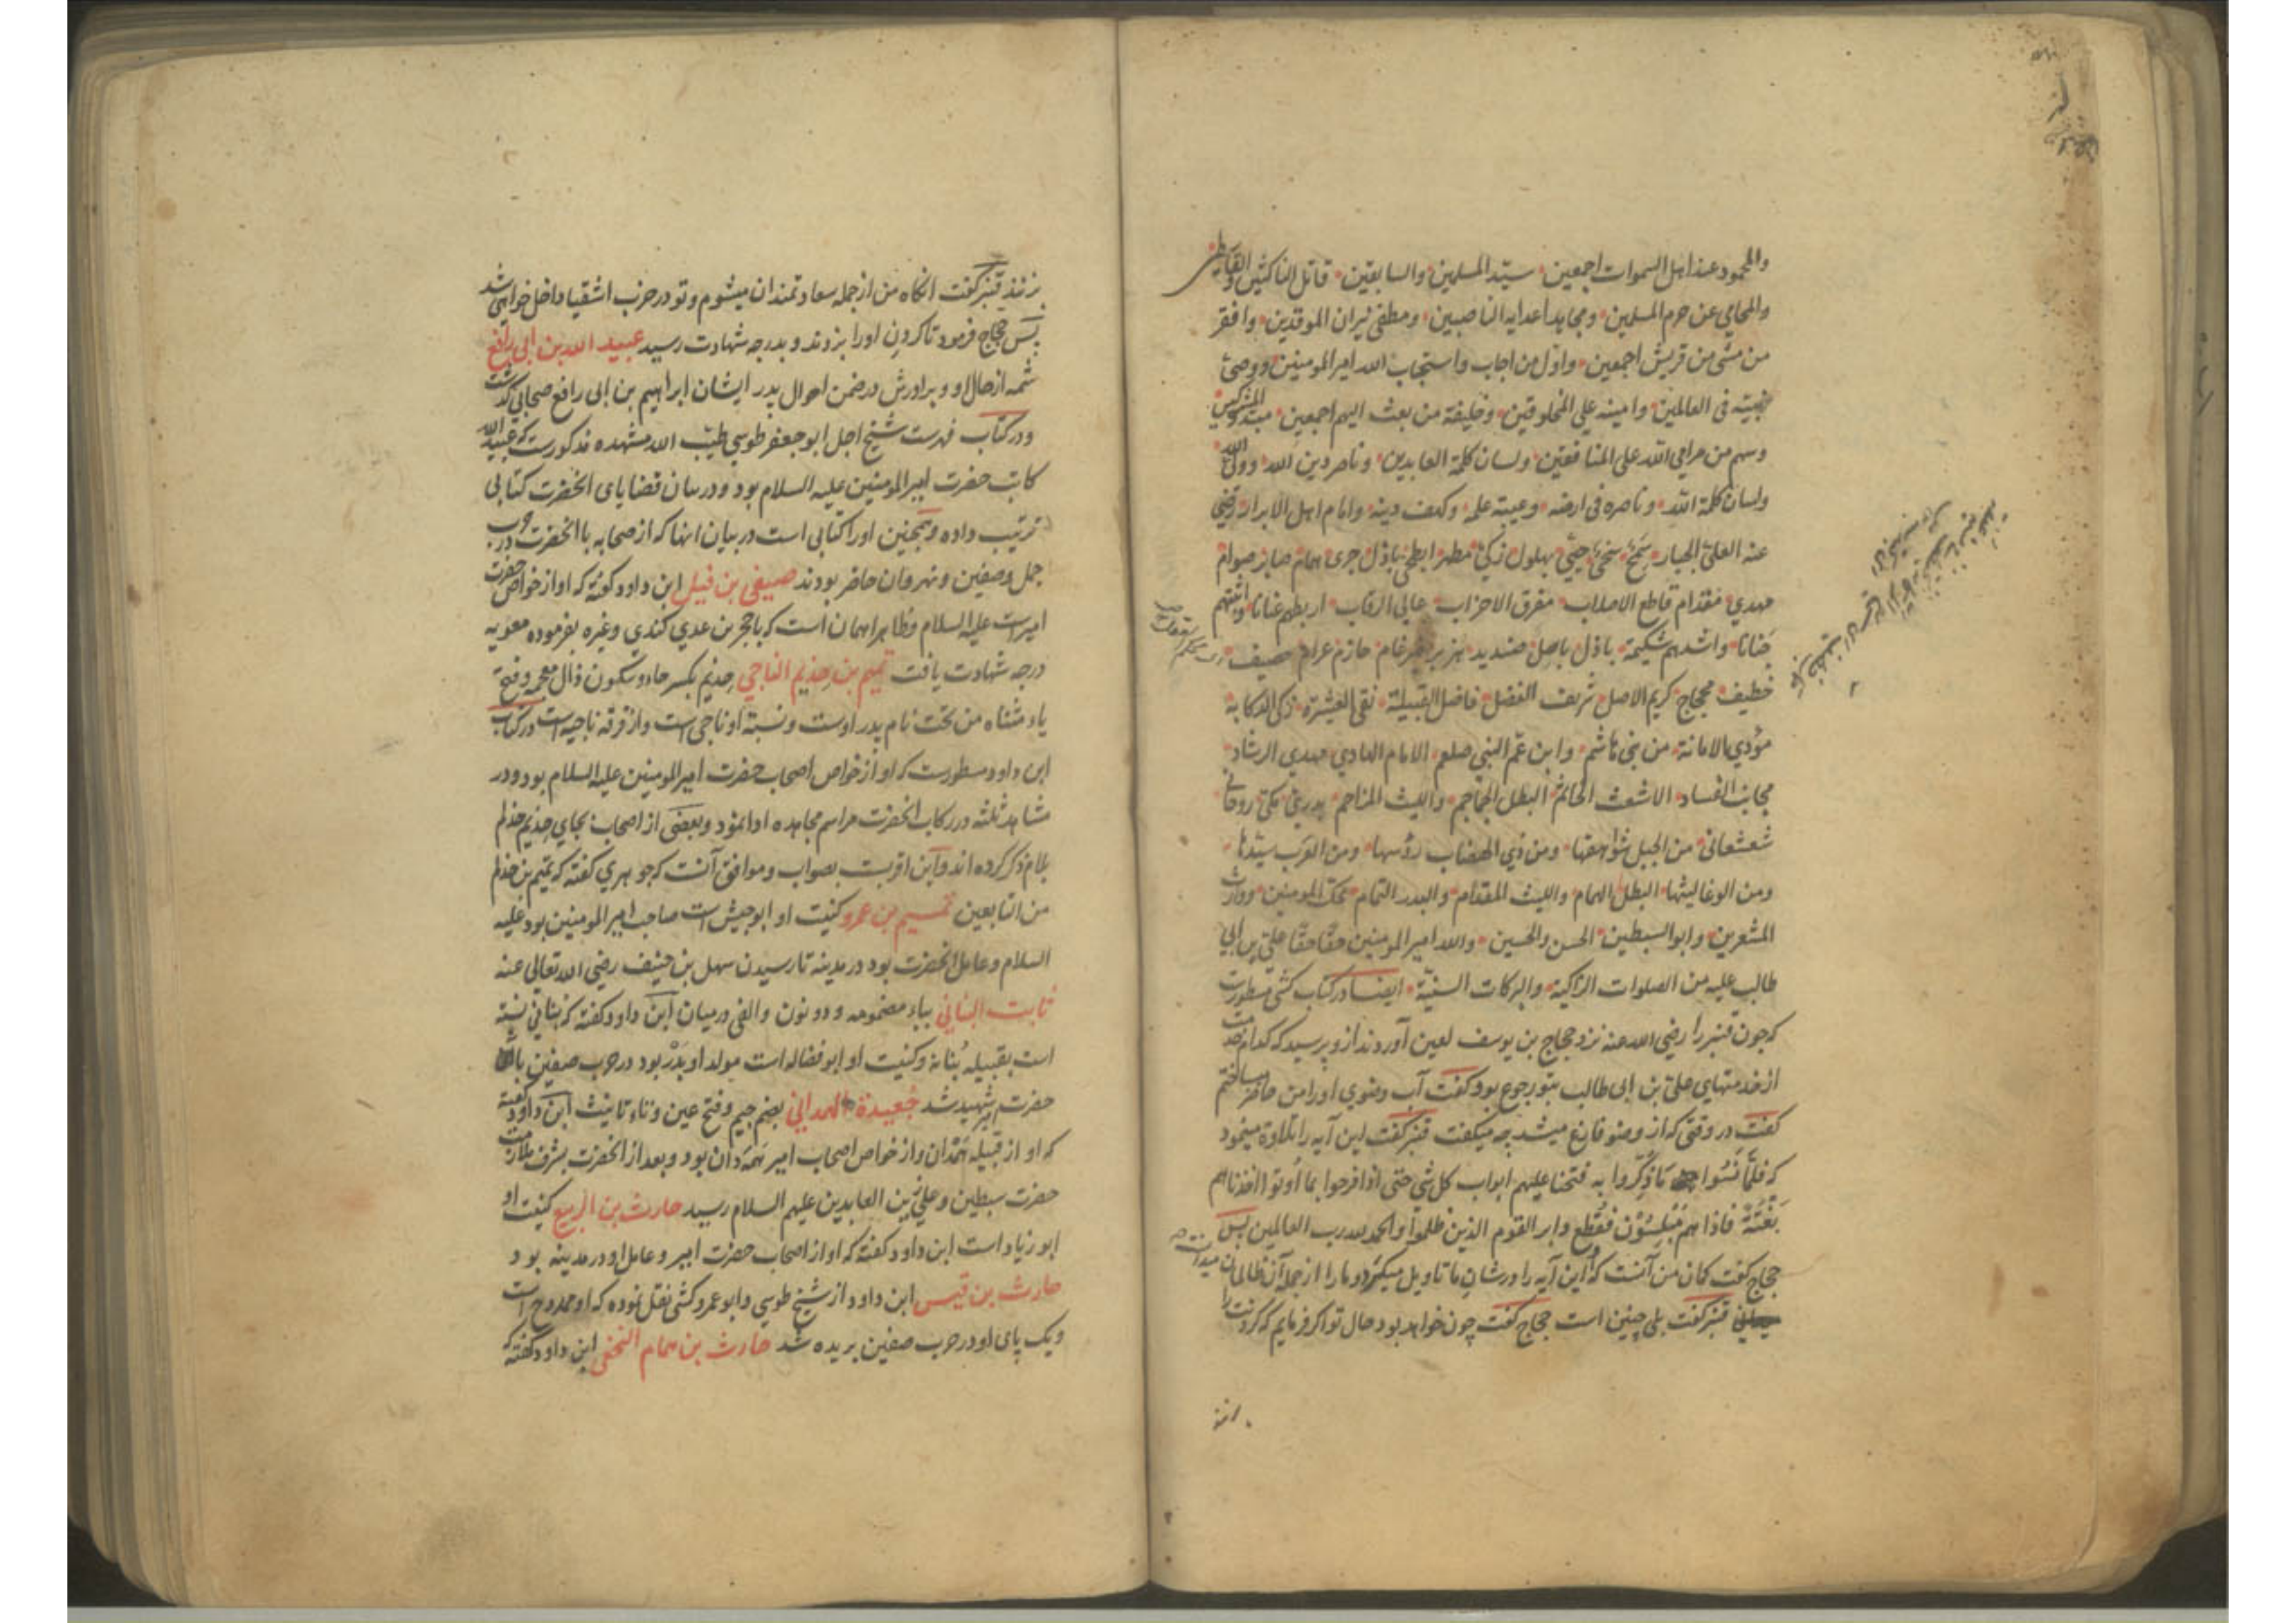 والمحمود عند اهل السموات اجمعین سیّد المسلمین والسابقین قاتل الناکثین والقاسطین
والمحامی عن حرم المسلمین ومجاهد اعدایه الناصبین ومطفئ نیران الموقدین وافقر
من مشی من قریش اجمعین واوّل من اجاب واستجاب الله امیر المومنین ووصیّ
نبیّه فی العالمین وامینه علی المخلوقین وخلیفة من بعث الیهم اجمعین المشرکین
وسهم من مرامی الله علی المنافقین ولسان کلمة العابدین وناصر دین الله وولیّ الله
ولسان کلمة الله وناصره فی ارضه وعیبة علمه وکهف دینه وامام اهل الابرار رضی
عنه العلیّ الجبار سَمِحٌ سخیّ حییّ بهلول زکیّ مطهر ابطحیّ باذل جری همام صابر صوام
مهدیّ مقدام قاطع الاصلاب مفرق الاحزاب عالی الرقاب اربطهم عنانا واثبتهم
جَنانا واشدهم شکیمة باذل باسل صندید هزبر ضرغام حازم عزام حصیف
خطیف محجاج کریم الاصل شریف الفضل فاضل القبیلة نقی العشیرة زکی الرکابة
مؤدی الامانة من بنی هاشم وابن عمّ النبی صلعم الامام الهادی مهدی الرشاد
مجانب الفساد الاشعث الحاتم البطل الجماجم واللیث المزاحم بدریّ مکّی روحانی
شعشعانی من الجبل شواهقها ومن ذی الهضاب رؤسها ومن العرب سیّدها
ومن الوغا لیثها البطل الهمام واللیث المقدام والبدر التمام محک المومنین ووارث
المشعرین وابو السبطین الحسن والحسین والله امیر المومنین حقّا حقّا علیّ بن ابی
طالب علیه من الصلوات الزاکیة والبرکات السنیّة ایضا در کتاب کشی مسطورست
که چون قنبر را رضی الله عنه نزد حجاج بن یوسف لعین آوردند ازو پرسید که کدام خدمت
از خدمتهای علیّ بن ابی طالب بتو رجوع بود گفت آب وضوی او را من حاضر میساختم
گفت در وقتی که از وضو فارغ میشد چه میگفت قنبر گفت این آیه را تلاوة مینمود
که فلمّا نَسُوا ما ذُکّروا به فتحنا علیهم ابواب کل شی حتی اذا فرحوا بما اُوتوا اخذناهم
بَغْتَةً فاذا هم مُبْلِسُون فَقُطع دابر القوم الذین ظلموا والحمد لله رب العالمین پس
حجاج گفت گمان من آنست که این آیه را در شان ما تاویل میکرد و ما را از جمله آن ظالمان میدانست
قنبر گفت بلی چنین است حجاج گفت چون خواهد بود حال تو اگر فرمایم که گردنت را
بزنند
بزنند قنبر گفت انگاه من از جمله سعادتمندان میشوم و تو در حزب اشقیا داخل خواهی شد
پس حجاج فرمود تا گردن او را بزدند و بدرجه شهادت رسید عبید الله بن ابی رافع
شمه از حال او و برادرش در ضمن احوال پدر ایشان ابراهیم بن ابی رافع صحابی گذشت
و در کتاب فهرست شیخ اجل ابو جعفر طوسی طیّب الله مشهده مذکورست که عبید الله
کاتب حضرت امیر المومنین علیه السلام بود و در بیان قضایای انحضرت کتابی
ترتیب داده و همچنین او را کتابی است در بیان انها که از صحابه با انحضرت در حرب
جمل و صفین و نهروان حاضر بودند صیفی بن فیل ابن داود گفته که او از خواص حضرت
امیرست علیه السلام و ظاهرا همان است که با حجر بن عدی کندی و غیره بفرموده معویه
درجه شهادت یافت تمیم بن حِذیم الناجی حِذیم بکسر حاء و سکون ذال معجمه و فتح
یاء مثناه من تحت نام پدر اوست و نسبة او ناجی است و از فرقه ناجیه است در کتاب
ابن داود مسطورست که او از خواص اصحاب حضرت امیر المومنین علیه السلام بود و در
مشاهد ثلثه در رکاب انحضرت مراسم مجاهده ادا نمود و بعضی از اصحاب بجای حذیم حذلم
بلام ذکر کرده اند و این اقربست بصواب و موافق آنست که جوهری گفته که تمیم بن حذلم
من التابعین تمیم بن عمرو کنیت او ابو حبیش است صاحب امیر المومنین بود علیه
السلام و عامل انحضرت بود در مدینه تا رسیدن سهل بن حنیف رضی الله تعالی عنه
ثابت البنانی بباء مضمومه و دو نون و الفی در میان ابن داود گفته که بنانی نسبة
است بقبیله بُنانة و کنیت او ابو فضاله است مولد او بَدْر بود در حرب صفین با
حضرت امیر شهید شد جُعیدة الهمدانی بضم جیم و فتح عین و تاء تانیث ابن داود گفته
که او از قبیله هَمْدان و از خواص اصحاب امیر هَمَدان بود و بعد از انحضرت بشرف ملازمت
حضرت سبطین و علی زین العابدین علیهم السلام رسید حارث بن الربیع کنیت او
ابو زیاد است ابن داود گفته که او از اصحاب حضرت امیر و عامل او در مدینه بود
حارث بن قیس ابن داود از شیخ طوسی و ابو عمرو کشی نقل نموده که او ممدوح است
و یک پای او در حرب صفین بریده شد حارث بن همام النخعی ابن داود گفته که